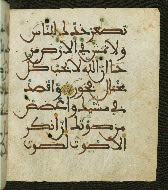 تصعر خدك للناس
ولا تمش في الأرض مر
حا إن الله لا يحب كل
مختال فخور واقصد
في مشيك واغضض
من صوتك إن أنكر
الأصوات لصوت